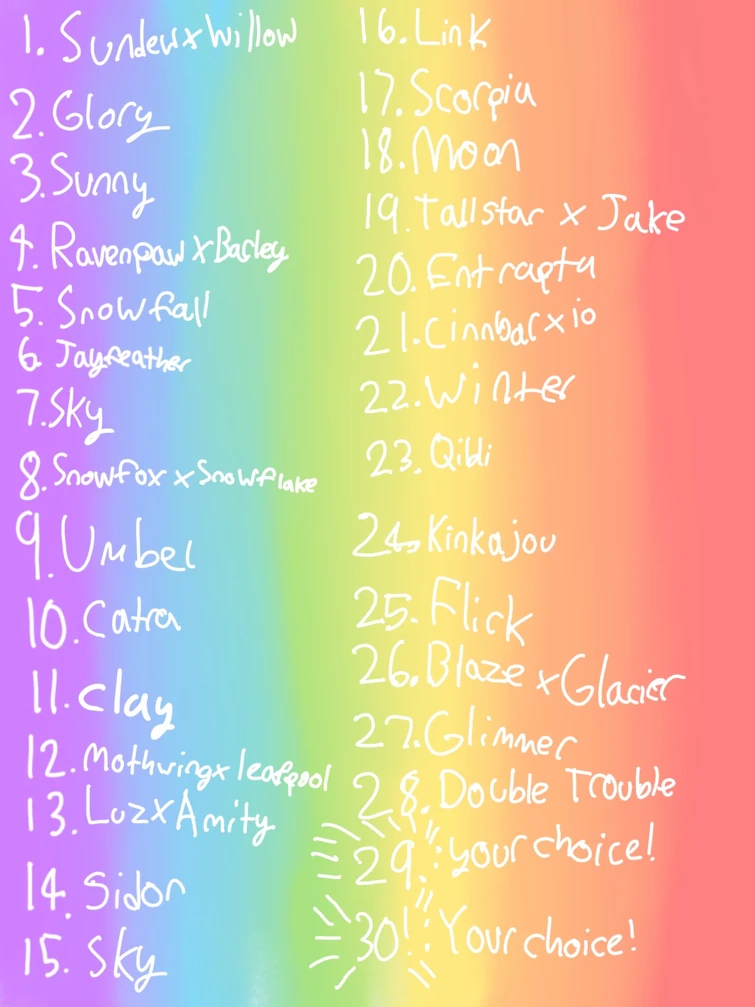 1. Sundew x Willow
2. Glory
3. Sunny
4. Ravenpaw x Barley
5. Snowfall
6. Jayfeather
7. Sky
8. Snowfox x Snowflake
9. Umbel
10. Catra
11. Clay
12. Mothwing x leafpool
13. Luz x Amity
14. Sidon
15. Sky
16. Link
17. Scorpia
18. Moon
19. Tallstar x Jake
20. Entrapta
21. Cinnbar x io
22. Winter
23. Qibli
24. Kinkajou
25. Flick
26. Blaze x Glacier
27. Glimmer
28. Double Trouble
29. : your choice!
30! : Your choice!